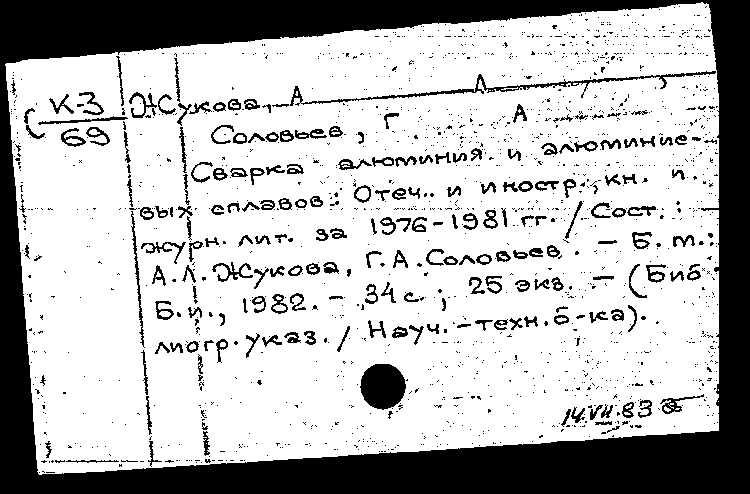 К-3 Жукова, А Л
69 Соловьев, Г А
Сварка алюминия и алюминие-
вых сплавов: Отеч. и иностр. кн. и
журн. лит. за 1976-1981 гг. / Сост.:
А.Л. Жукова, Г.А. Соловьев. - Б. м.:
Б.и., 1982. - 34 с ; 25 экз. - (Биб
лиогр. указ. / Науч.-техн. б-ка).
14.VII.83